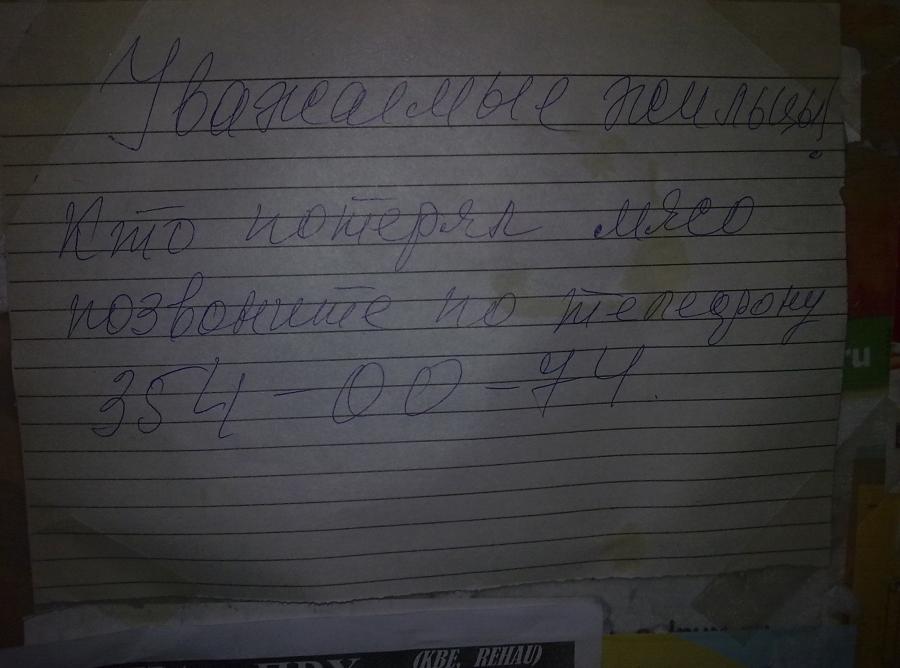 Уважаемые жильцы!
Кто потерял мясо
позвоните по телефону
354-00-74.
ru
(KBE, REHAU)